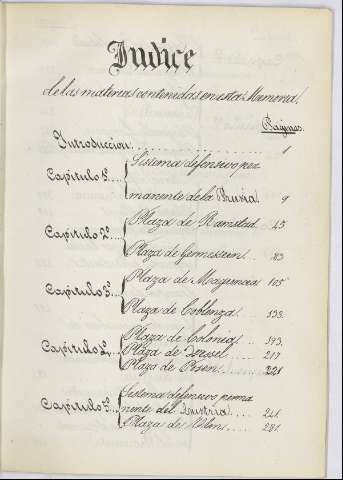 Indice
de las materias contenidas en esta Memoria.
Páginas.
Introduccion. . . . . . . . . . . . . . . . . . 1
Capitulo 1º. . . . { Sistema defensivo per
manente de la Prusia. . 9
Capitulo 2º { Plaza de Ramstad . . 45
Plaza de Germesein . . 83
Capitulo 3º { Plaza de Maguncia 105
Plaza de Coblenza . . . 133.
Capitulo 4º { Plaza de Colonia . . . 193.
Plaza de Wessel . . . . 217
Plaza de Posen . . . . 221
Capitulo 5º { Sistema defensivo perma
nente del Austria . . . . 241.
Plaza de Ulm . . . . 281.